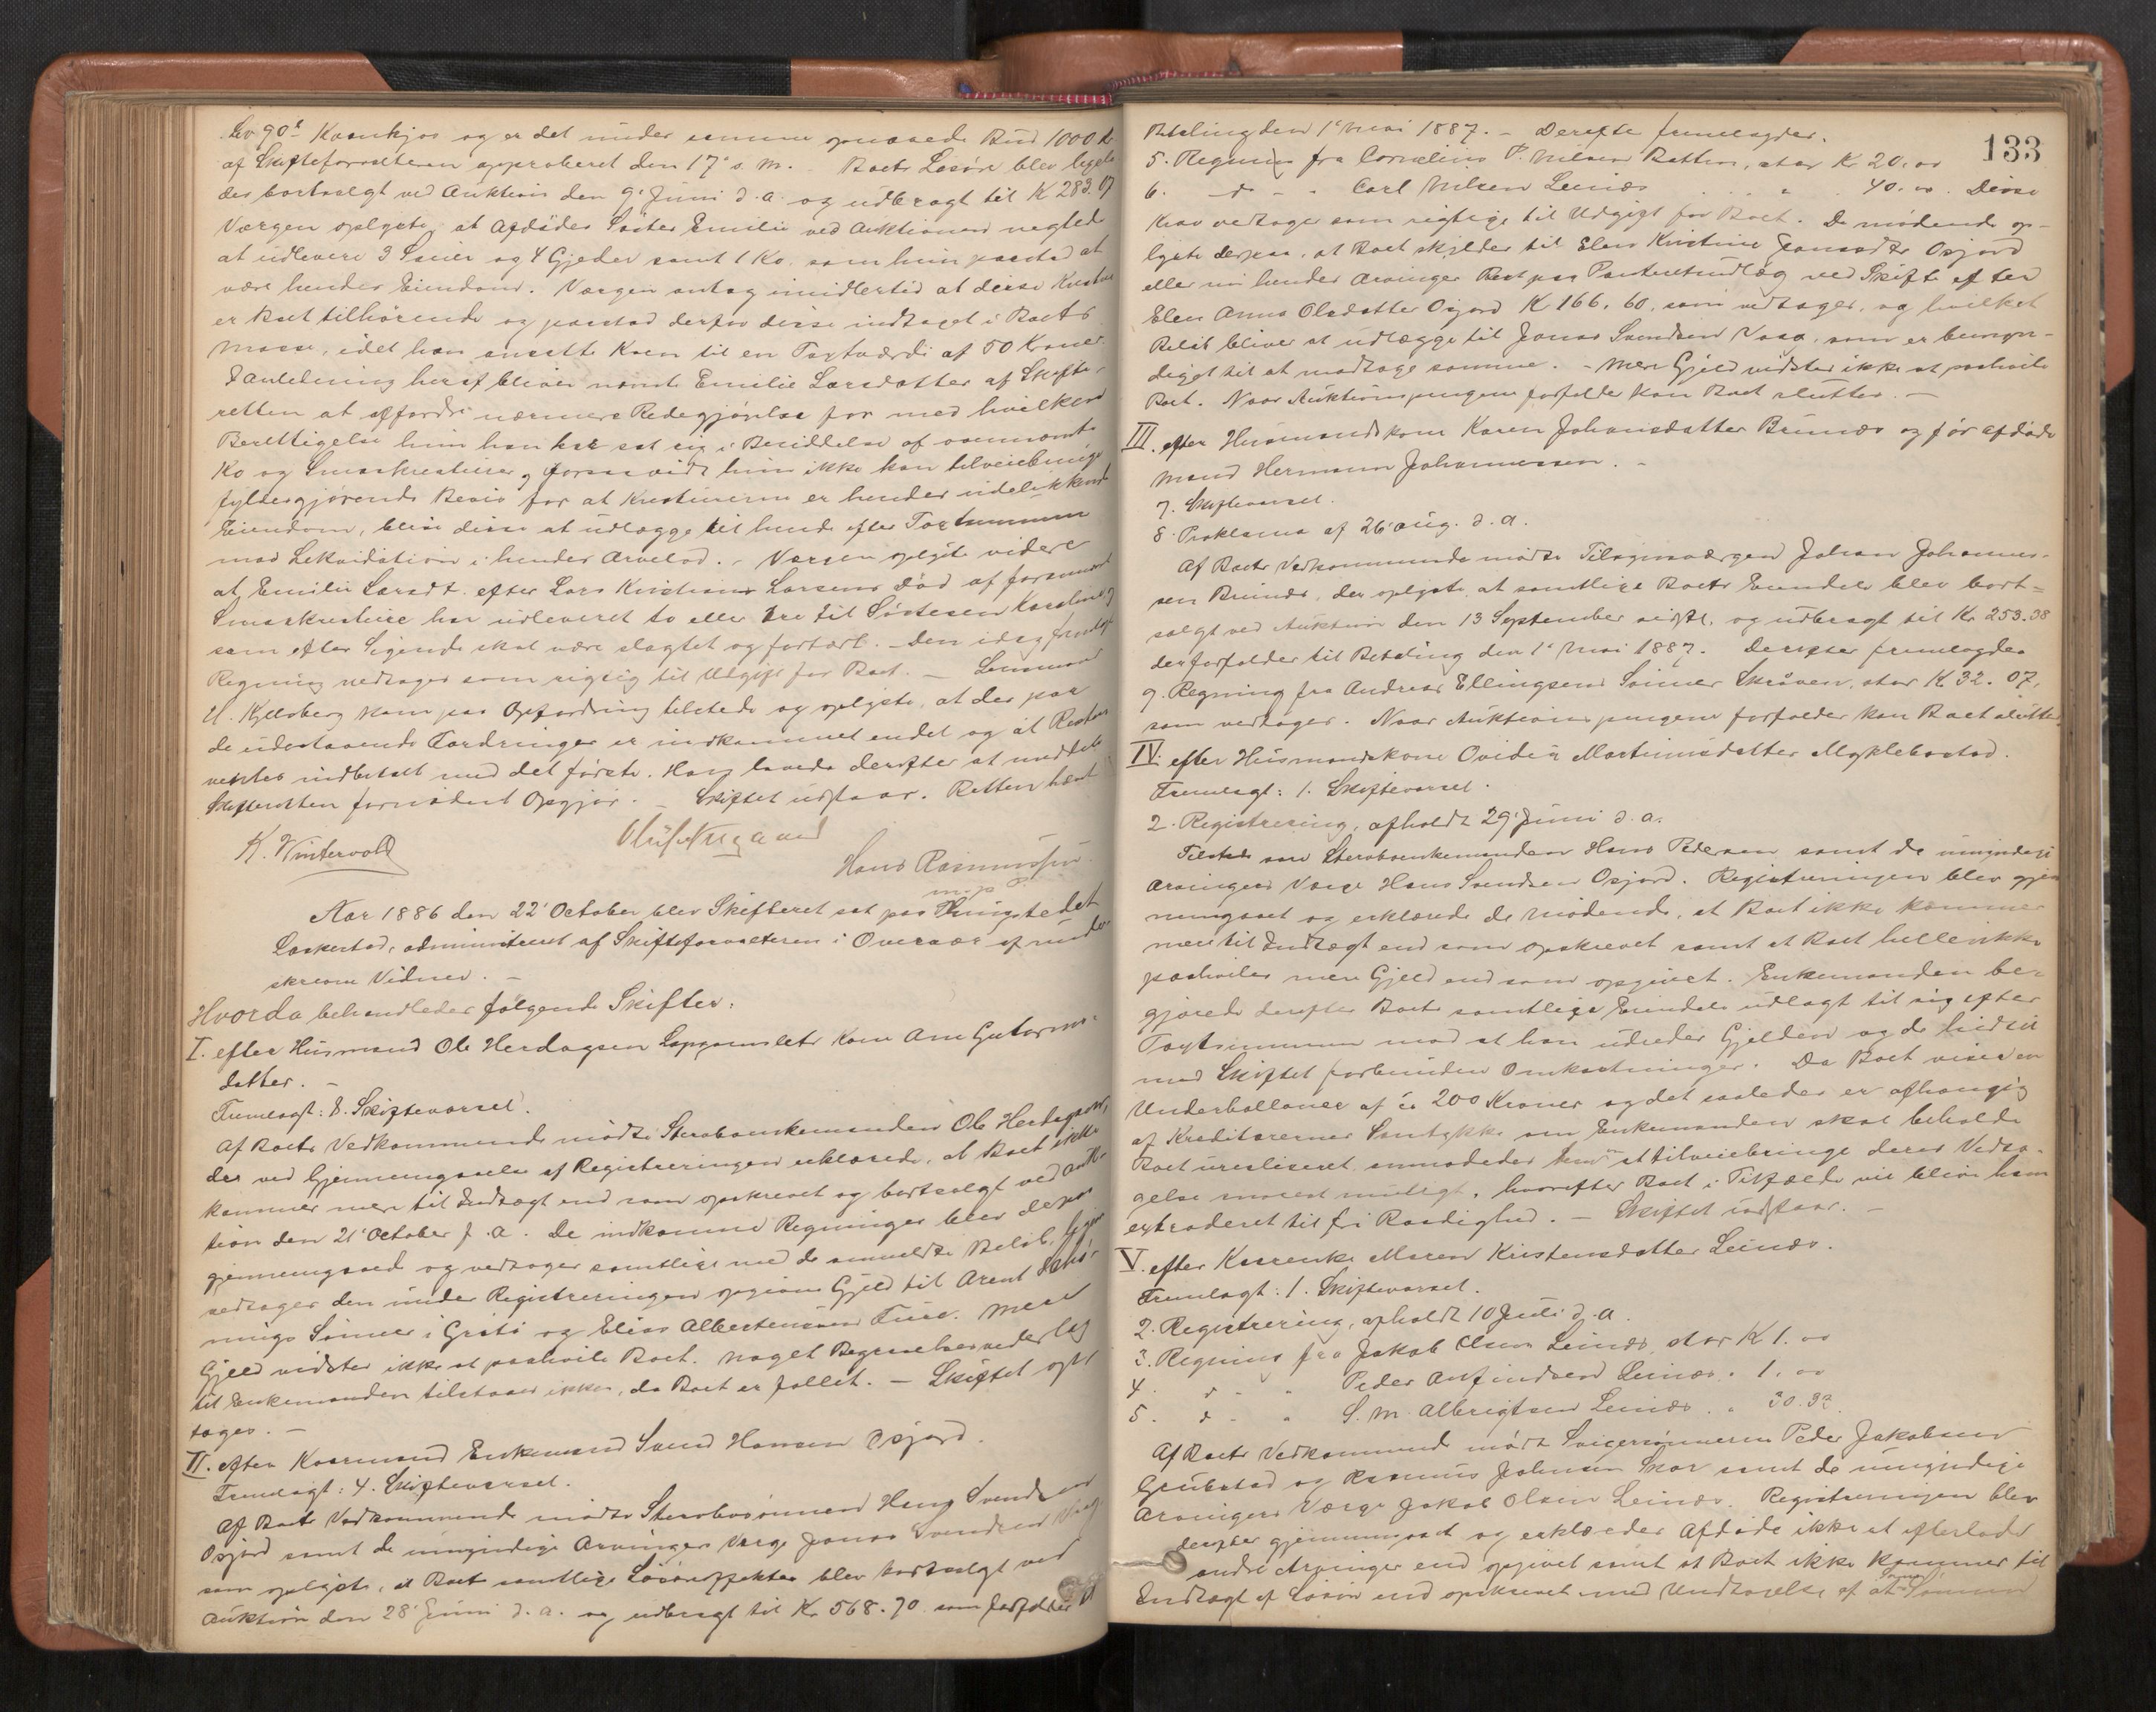 Lv 90 b Kaankjos og er det under samme opnaaede Bud 1000 Kr
af Skifteforvalteren approberet den 17' s. M. Boets Løsøre blev ligele-
des bortsolgt ved Auktion den 9' Juni d. a. og udbragt til K 283.07
Værgen oplyste, at Afdødes Søster Emilie ved Auktionen negted
at udlevere 3 Smeer og 4 Gjeder samt 1 Ko, som hun paastod at
være hendes Eiendom. Værgen antog imidlertid at disse Kreature
er Boet tilhørende og paastod derfor disse indtaget i Boets
Masse, idet han ansatte Koen til en Taxtværdi af 50 Kroner.
I Anledning heraf bliver nævnte Emilie Larsdatter af Skifte-
retten at affordre nærmere Redegjørelse for med hvilken
Berettigelse hun har sat sig i Besiddelse af ovennævnte
Ko og Smaakreaturer, og forsaavidt hun ikke kan tilveiebringe
fyldesgjørende Bevis for at Kreaturerne er hendes udelukkende
Eiendom, blive disse at udlægge til hende efter Taxtsummen
mod Likvidation i hendes Arvelod. - Værgen oplyste videre
at Emilie Larsdt. efter Lars Kristian Larsens Død af forannævnte
Smaakreature har udleveret to eller tre til Søsteren Karoline,
som efter Sigende skal være slagtet og fortært. - Den idag fremlagte
Regning vedtages som rigtig til Udgift for Boet. - Lensmand
U. Kjelsberg kom paa Opfordring tilstede og oplyste, at der paa
de udestaaende Fordringer er indkommet endel og at Resten
ventes indbetalt med det første. Han lovede derefter at meddele
Skifteretten fornødent Opgjør. - Skiftet udstaar. Retten hævet
K. Wintervold
Hans Rasmussen
m. p. P.
Aar 1886 den 22' October blev Skifteret sat paa Thingstedet
Laskestad, administreret af Skifteforvalteren i Overvær af under-
skrevne Vidner. -
Hvorda behandledes følgende Skifter:
I. efter Husmand Ole Herdagsen Kone Ane Guttorms-
datter. -
Fremlagt: 8. Skiftevarsel.
Af Boets Vedkommende mødte Stervboenkemanden Ole Herdagsen,
der ved Gjennemgaaelse af Registreringen erklærede, at Boet ikke
kommer mere til Indtægt end som opskrevet og bortsolgt ved Auk-
tion den 21' October f. a. De indkomne Regninger blev derpaa
gjennemgaaede og vedtages samtlige med de anmeldte Beløb, ligesom
vedtages den under Registreringen opgivne Gjeld til Arent
nings Sønner i Grøtø og Elias Albertensen Furu. Mere
Gjeld vidstes ikke at paahvile Boet. Noget Begravelsesvederlag
til Enkemanden tilstaaes ikke, da Boet er fallet. - Skiftet opt-
tages. -
II. efter Kaarmand Enkemand Svend Hansen Osjord.
Fremlagt: 4. Skiftevarsel.
Af Boets Vedkommende mødte Stervbosønnen Hans Svendsen
Osjord samt de umyndige Arvingers Værge Jonas Svendsen Vaag
som oplyste, at Boets samtlige Løsøreffekter blev bortsolgt ved
Auktion den 28' Juni d. a. og udbragt til Kr. 568.70 som forfalder til
133
Betaling den 1' Mai 1887. - Derefter fremlagdes.
5. Regning fra Cornelius P. Nilsen Batten, stor Kr 20.00
6. do - " Carl Nilsen Leinæs . . . " . 40.00. Disse
Krav vedtages som rigtige til Udgift for Boet. De mødende op-
lyste derpaa, at Boet skylder til Elen Kristine Jonasdtr Osjord
eller nu hendes Arvinger Rest paa Panteretsudlæg ved Skifte efter
Elen Anna Olsdatter Osjord K 166.60, som vedtages, og hvilket
Beløb bliver at udlægge til Jonas Svendsen Vaag, som er bemyn-
diget til at modtage samme. - Mere Gjeld vidstes ikke at paahvile
Boet. Naar Auktionspengene forfalder kan Boet sluttes. -
III. efter Husmandskone Karen Johansdatter Brunæs og før afdøde
Mand Hermann Johannessen. -
7. Skiftevarsel.
8. Proklama af 26' Aug. d. a.
Af Boets Vedkommende mødte Tilsynsværgen Johan Johannes-
sen Brunæs, der oplyste, at samtlige Boets Eiendele blev bort-
solgt ved Auktion den 13 September sidstl. og udbragt til Kr. 253.38
der forfalder til Betaling den 1' Mai 1887. Derefter fremlagdes
9. Regning fra Andreas Ellingsens Sønner Skroven, stor K 32.07,
som vedtages. Naar Auktionspengene forfalder kan Boet sluttes
IV. efter Husmandskone Ovidia Martinusdatter Myklebostad.
Fremlagt: 1. Skiftevarsel.
2. Registrering, afholdt 29' Juni d. a.
Tilstede var Stervboenkemanden Hans Pedersen samt de umyndige
Arvingers Værge Hans Svendsen Osjord. Registreringen blev gjen-
nemgaaet og erklærede de mødende, at Boet ikke kommer
mere til Indtægt end som opskrevet samt at Boet heller ikke
paahviles mere Gjeld end som opgivet. Enkemanden be-
gjærede derefter Boets samtlige Eiendele udlagt til sig efter
Taxtsummen mod at han udreder Gjelden og de hidtil
med Skiftet forbundne Omkostninger. Da Boet viser en
Underballance af ca 200 Kroner og det saaledes er afhængig
af Kreditorernes Samtykke om Enkemanden skal beholde
Boet urealiseret anmodedes han at tilveiebringe deres Vedta-
gelse snarest muligt, hvorefter Boet i Tilfælde vil blive ham
extraderet til fri Raadighed. - Skiftet udstaar. -
V. efter Kaarenke Maren Kristensdatter Leinæs.
Fremlagt: 1. Skiftevarsel.
2. Registrering, afholdt 10 Juli d. a.
3. Regning fra Jakob Olsen Leinæs, stor K 1.00
4. do - " Peder Anfindsen Leinæs. " 1.00
5. do - " S. M. Albrigtsen Leinæs. " 30.32.
Af Boets Vedkommende mødte Svigersønnerne Peder Jakobsen
Grubstad og Rasmus Johnsen Skar samt de umyndige
Arvingers Værge Jakob Olsen Leinæs. Registreringen blev
derefter gjennemgaaet og erklæredes Afdøde ikke at efterlade
andre Arvinger end opgivet samt at Boet ikke kommer til
Indtægt af Løsøre end opskrevet med Undtagelse af at Sønnen